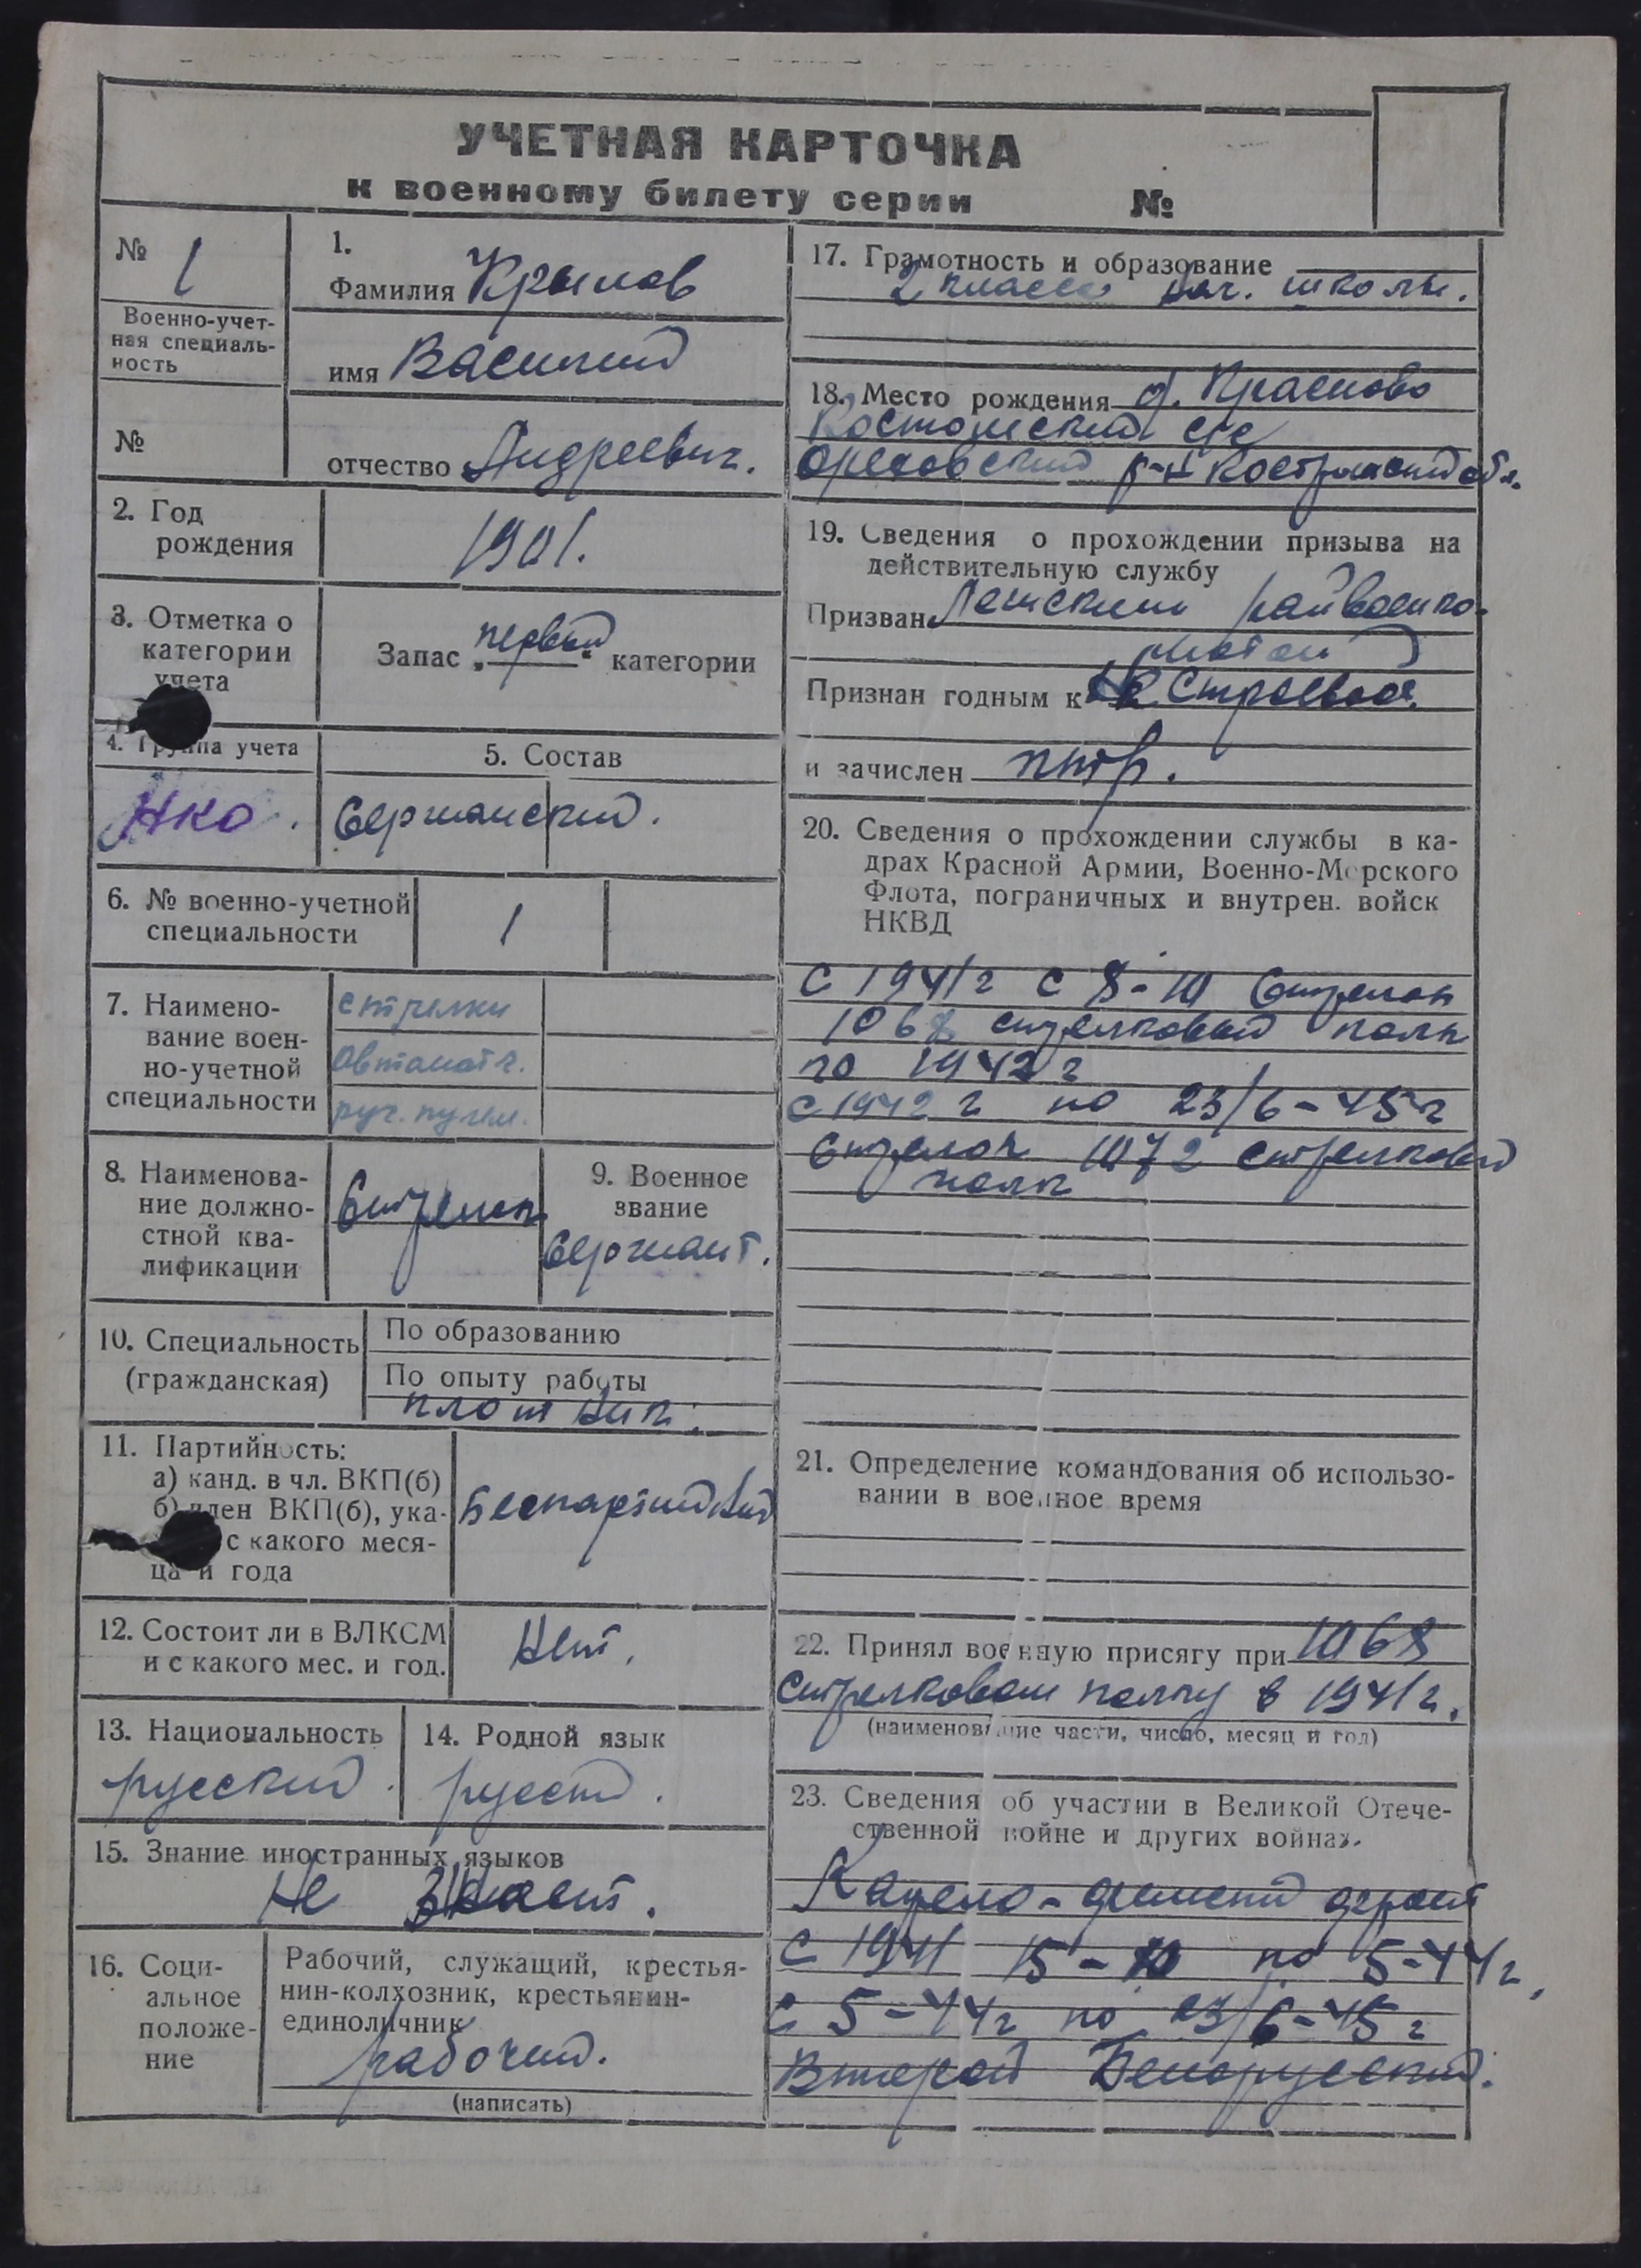 УЧЕТНАЯ КАРТОЧКА
к военному билету серии №
№ 1
Военно-учет-
ная специаль-
ность
№
1.
Фамилия Крылов
имя Василий
отчество Андреевич.
2. Год
рождения
1901.
3. Отметка о
категории
учета
Запас „первой" категории
4. Группа учета
НКО.
5. Состав
Сержанский.
6. № военно-учетной
специальности
1
7. Наимено-
вание воен-
но-учетной
специальности
стрелки
автоматч.
руч. пулем.
8. Наименова-
ние должно-
стной ква-
лификации
Стрелок
9. Военное
звание
Сержант.
10. Специальность
(гражданская)
По образованию
По опыту работы
плотник.
11. Партийность:
а) канд. в чл. ВКП(б)
б) член ВКП(б), ука-
с какого меся-
ца и года
Беспартийный
12. Состоит ли в ВЛКСМ
и с какого мес. и год.
Нет.
13. Национальность
русский.
14. Родной язык
русский.
15. Знание иностранных языков
Не знает.
16. Соци-
альное
положе-
ние
Рабочий, служащий, крестья-
нин-колхозник, крестьянин-
единоличник
рабочий.
(написать)
17. Грамотность и образование
2 класса нач. школы.
18. Место рождения д. Красново
с/с
Ореховский р-н Костромской обл.
19. Сведения о прохождении призыва на
действительную службу
Призван райвоенко-
матом
Признан годным к строевой.
и зачислен
20. Сведения о прохождении службы в ка-
драх Красной Армии, Военно-Морского
Флота, пограничных и внутрен. войск
НКВД
С 1941 г с 8-10 Стрелок
1068 стрелковый полк
по 1942 г
с 1942 г по 23/6-45 г
Стрелок 1072 стрелковый
полк
21. Определение командования об использо-
вании в военное время
22. Принял военную присягу при 1068
стрелковом полку в 1941 г.
(наименование части, число, месяц и год)
23. Сведения об участии в Великой Отече-
ственной войне и других войнах.
Карело-финский фронт
С 1941 15-10 по 5-44 г,
С 5-44 г по 23/6-45 г
Второй Белорусский.